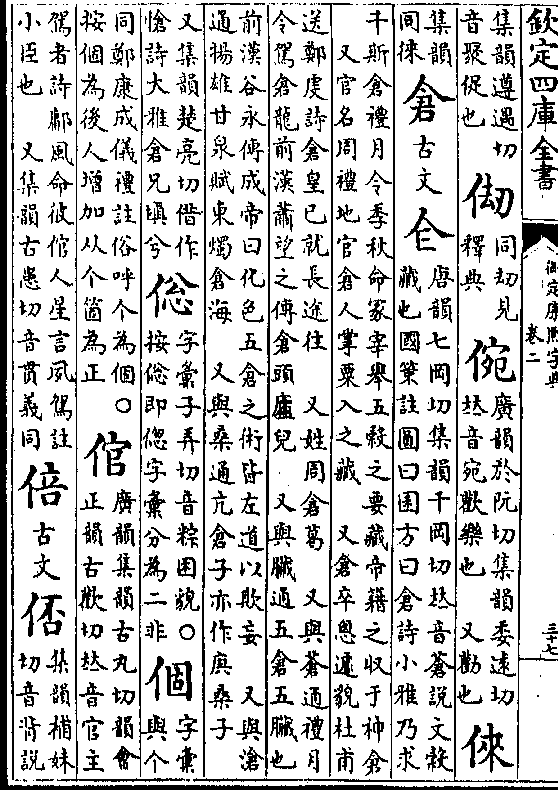 欽定四庫全書
御定康熙字典
卷二
三十七
集韻遵遇切
音聚促也
同刧見
釋典
倇
廣韻於阮切集韻委遠切
𠀤音宛歡樂也 又勸也
倈
集韻
同徠
倉古文仺
唐韻七岡切集韻千岡切𠀤音蒼說文穀
藏也國策註圓曰囷方曰倉詩小雅乃求
千斯倉禮月令季秋命冢宰舉五穀之要藏帝籍之収于神倉
又官名周禮地官倉人掌粟入之藏 又倉卒悤遽貌杜甫
送鄭虔詩倉皇已就長途往 又姓周倉葛 又與蒼通禮月
令駕倉龍前漢蕭望之傳倉頭廬兒 又與臟通五倉五臟也
前漢谷永傳成帝曰化色五倉之術皆左道以欺妄 又與滄
通揚雄甘泉賦東燭倉海 又與桑通亢倉子亦作庚桑子
又集韻楚亮切借作
愴詩大雅倉兄塡兮
字彙子弄切音粽困貌○
按即偬字彙分為二非
個
字彙
與个
同鄭康成儀禮註俗呼个為個○
按個為後人增加从个箇為正
倌
廣韻集韻古丸切韻會
正韻古歡切𠀤音官主
駕者詩鄘風命彼倌人星言夙駕註
小臣也 又集韻古患切音貫義同
倍古文俖
集韻補妹
切音背說